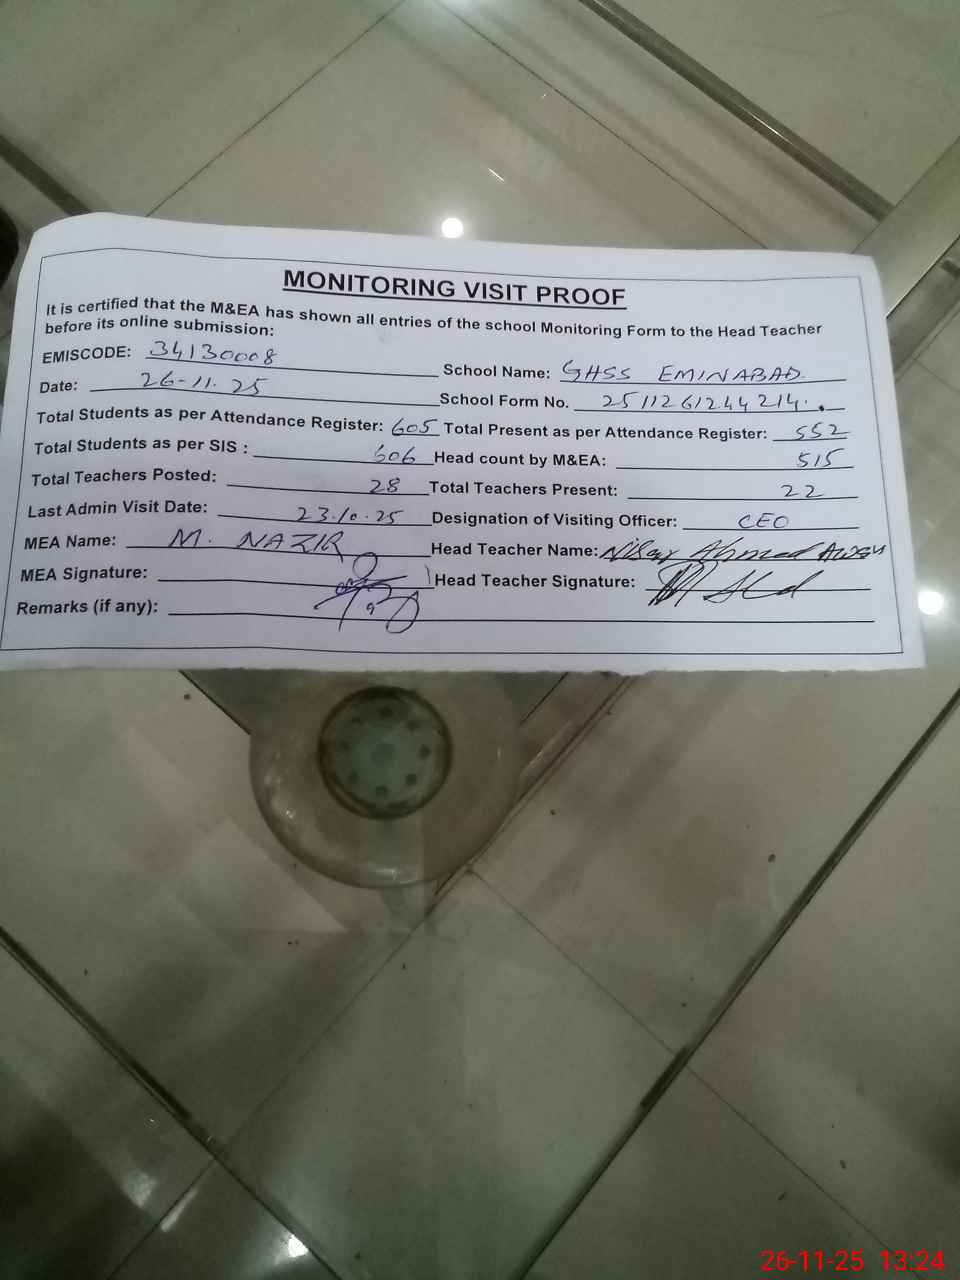 MONITORING VISIT PROOF
It is certified that the M&EA has shown all entries of the school Monitoring Form to the Head Teacher
before its online submission:
EMISCODE: 34130008 School Name: GHSS EMINABAD
Date: 26-11-25 School Form No. 251126124214.
Total Students as per Attendance Register: 605 Total Present as per Attendance Register: 552
Total Students as per SIS : 606 Head count by M&EA: 515
Total Teachers Posted: 28 Total Teachers Present: 22
Last Admin Visit Date: 23.10.25 Designation of Visiting Officer: CEO
MEA Name: M. NAZIR Head Teacher Name: Nisar Ahmed
MEA Signature: Head Teacher Signature:
Remarks (if any):
26-11-25 13:24